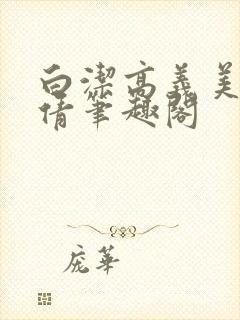 白潔高義美
倩筆趣閣
庞華